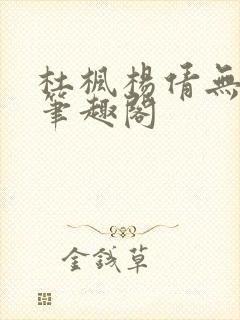 杜楓楊倩無
筆趣閣
金錢草